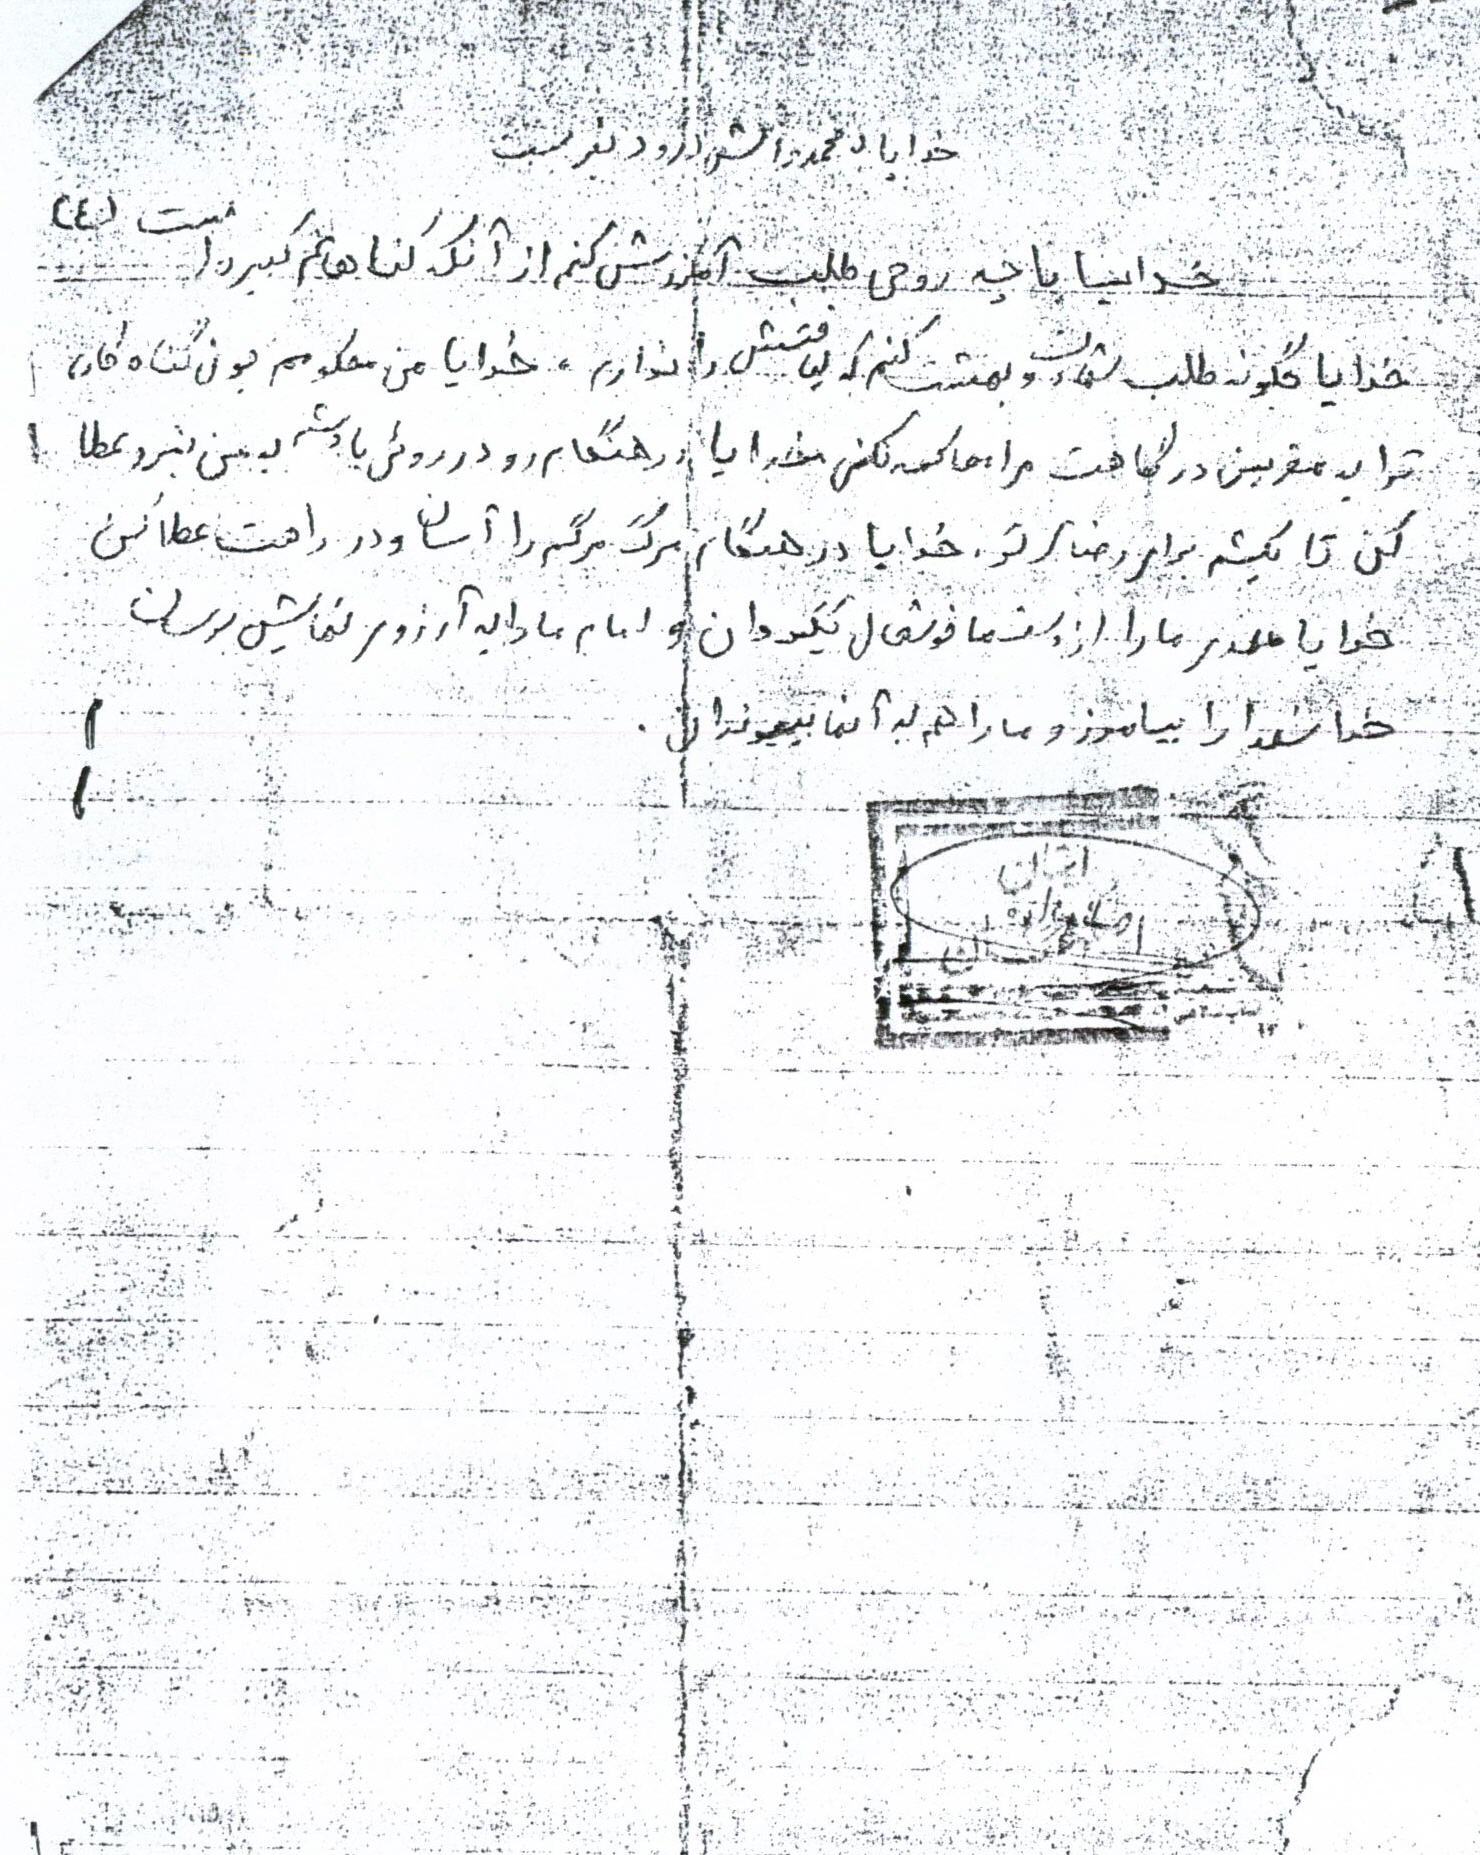 خدایا به محمد و آلش درود بفرست
(٤)
خدایا با چه روحی طلب آمرزش کنم از آنکه گناهانم کبیر و است
خدایا چگونه طلب شهادت و بهشت کنم که لیاقتش را ندارم ، خدایا من محکومم چون گناه کارم
ترا به مقربین درگاهت مرا محاکمه نکنی خدایا در هنگام رو در روئی با دشمن به من نیرو عطا
کن تا بکشم برای رضای تو . خدایا در هنگام مرگ مرگم را آسان و در راهت عطا کن
خدایا مهدی ما را از دست ما خوشحال بگردان و امام ما را به آرزوی نهایش برسان
خدا شهدا را بیامرز و ما را هم به آنها بپیوندان .